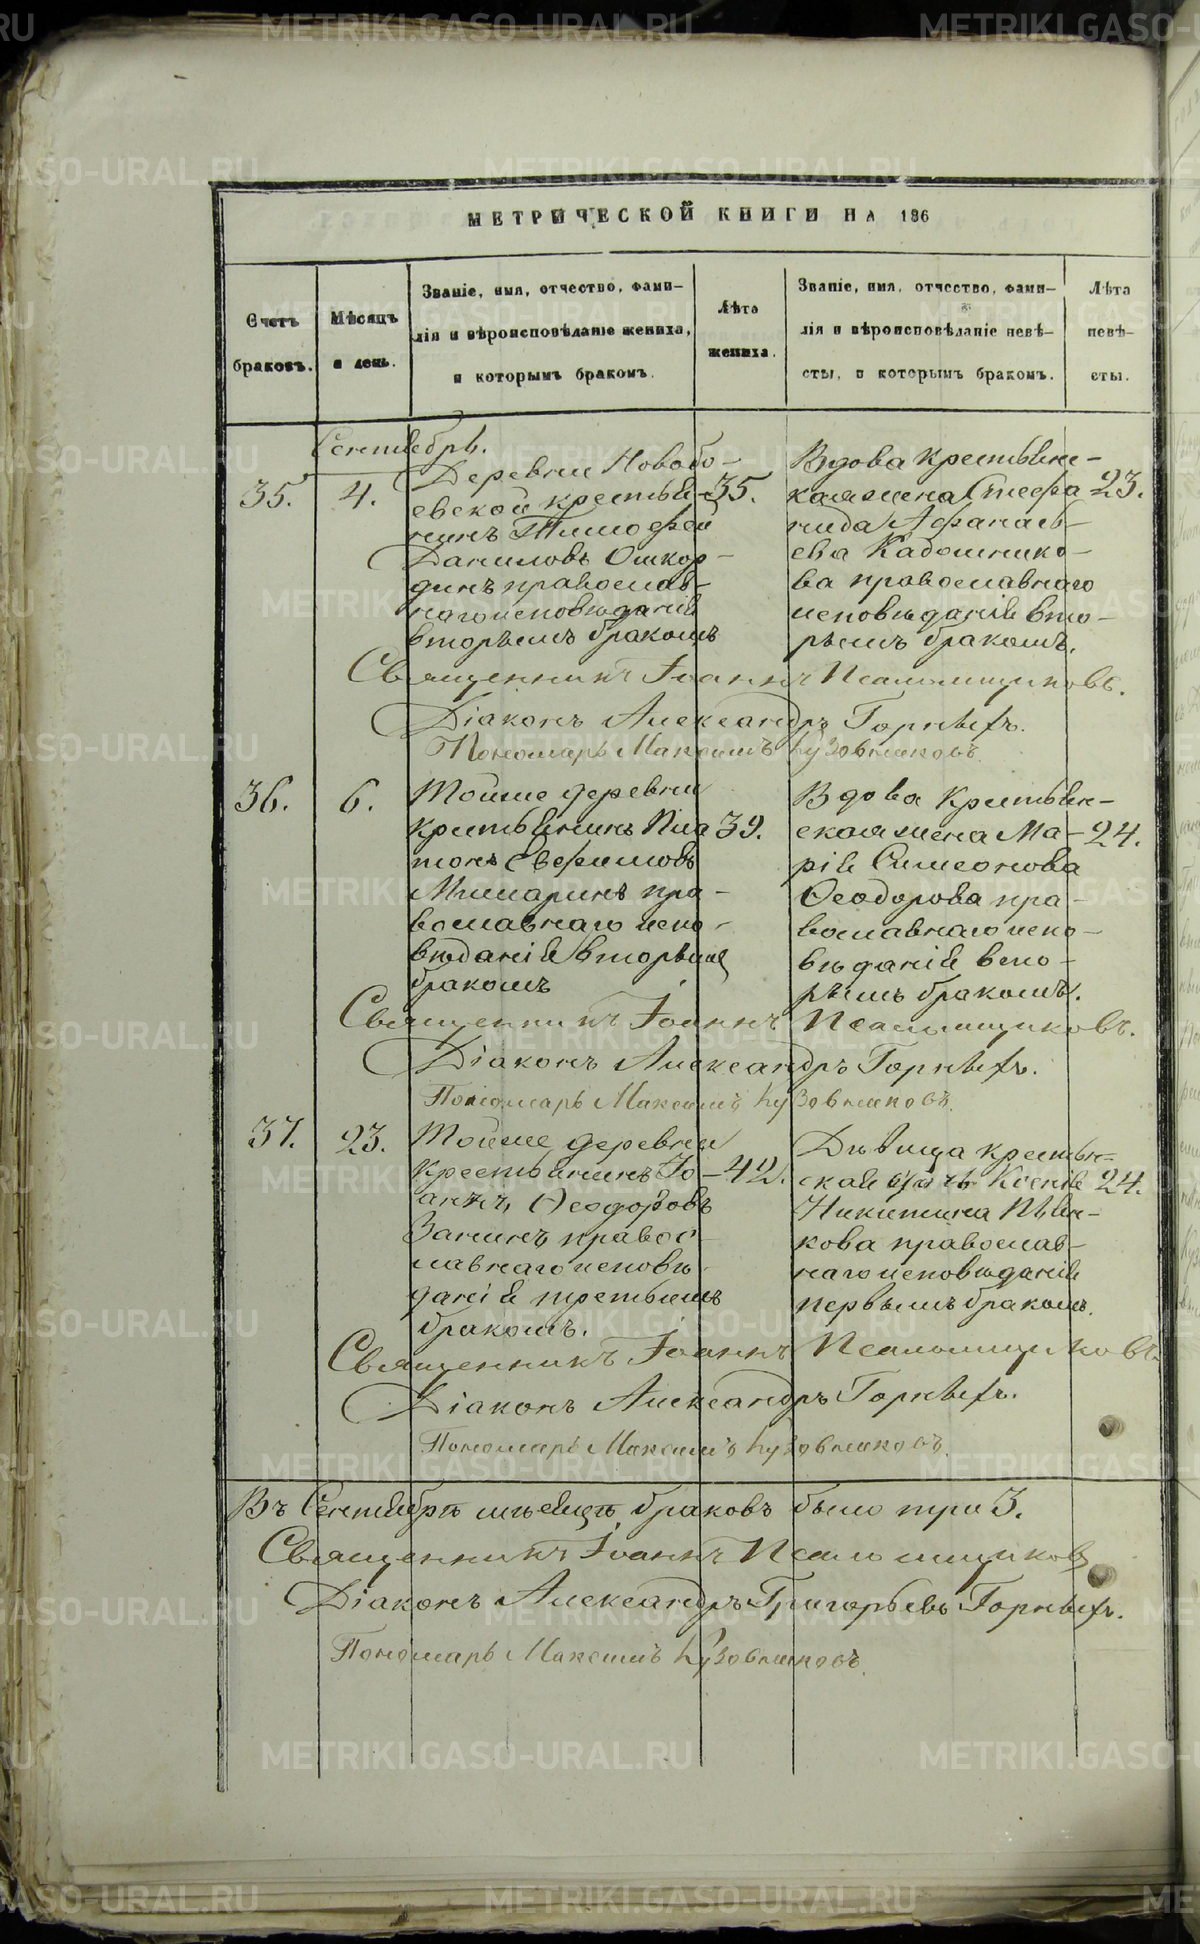 МЕТРИЧЕСКОЙ КНИГИ НА 186
Счетъ браковъ.
Мѣсяцъ и день.
Званіе, имя, отчество, фами-
лія и вѣроисповѣданіе жениха,
и которымъ бракомъ.
Лѣта
жениха.
Званіе, имя, отчество, фами-
лія и вѣроисповѣданіе невѣ-
сты, и которымъ бракомъ.
Лѣта
невѣ-
сты.
Сентябрь.
35.
4.
Деревни Новобо-
евской крестья-
нинъ Тимофей
Даниловъ
православ-
наго исповѣданія
вторымъ бракомъ
35.
Вдова крестьянс-
кая жена Стефа
нида Афанась-
ева Кадошнико-
ва православнаго
исповѣданія вто-
рымъ бракомъ.
23.
Священникъ Іоаннъ Псаломщиковъ.
Діаконъ Александръ Горныхъ.
Пономарь Максимъ Кузовниковъ.
36.
6.
Тойже деревни
крестьянинъ Пла
тонъ Евфимовъ
пра-
вославнаго испо-
вѣданія вторымъ
бракомъ
39.
Вдова Крестьян-
ская жена Ма-
рія Симеонова
Ѳеодорова пра-
вославнаго испо-
вѣданія вто-
рымъ бракомъ.
24.
Священникъ Іоаннъ Псаломщиковъ.
Діаконъ Александръ Горныхъ.
Пономарь Максимъ Кузовниковъ.
37.
23.
Тойже деревни
крестьянинъ Іо-
аннъ Ѳеодоровъ
Занинъ правос-
лавнаго исповѣ-
данія третьимъ
бракомъ.
42.
Дѣвица крестьян-
ская дочь Ксенія
Никитина Пѣн-
кова православ-
наго исповѣданія
первымъ бракомъ.
24.
Священникъ Іоаннъ Псаломщиковъ.
Діаконъ Александръ Горныхъ.
Пономарь Максимъ Кузовниковъ.
Въ Сентябрѣ мѣсяцѣ браковъ было три 3.
Священникъ Іоаннъ Псаломщиковъ
Діаконъ Александръ Григорьевъ Горныхъ.
Пономарь Максимъ Кузовниковъ.
METRIKI.GASO-URAL.RU